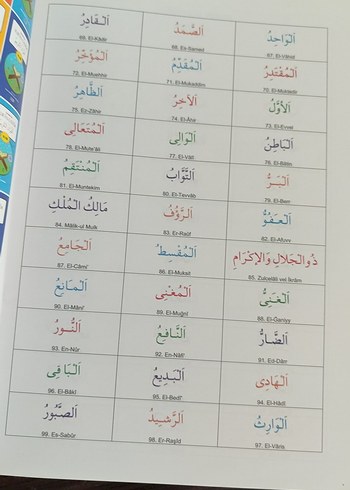 اَلْوَاحِدُ
67. El-Vâhid
اَلصَّمَدُ
68. Es-Samed
اَلْقَادِرُ
69. El-Kâdir
اَلْمُقْتَدِرُ
70. El-Muktedir
اَلْمُقَدِّمُ
71. El-Mukaddim
اَلْمُؤَخِّرُ
72. El-Muahhir
اَلْاَوَّلُ
73. El-Evvel
اَلْاٰخِرُ
74. El-Âhir
اَلظَّاهِرُ
75. Ez-Zâhir
اَلْبَاطِنُ
76. El-Bâtın
اَلْوَالِى
77. El-Vâlî
اَلْمُتَعَالِى
78. El-Müte'âlî
اَلْبَرُّ
79. El-Berr
اَلتَّوَّابُ
80. Et-Tevvâb
اَلْمُنْتَقِمُ
81. El-Müntekim
اَلْعَفُوُّ
82. El-Afüvv
اَلرَّؤُفُ
83. Er-Raûf
مَالِكُ الْمُلْكِ
84. Mâlik-ul Mulk
ذُوالْجَلَالِ وَالْاِكْرَامِ
85. Zulcelâli vel İkrâm
اَلْمُقْسِطُ
86. El-Muksit
اَلْجَامِعُ
87. El-Câmi'
اَلْغَنِىُّ
88. El-Ganiyy
اَلْمُغْنِى
89. El-Muğnî
اَلْمَانِعُ
90. El-Mâni'
اَلضَّارُّ
91. Ed-Dârr
اَلنَّافِعُ
92. En-Nâfi'
اَلنُّورُ
93. En-Nûr
اَلْهَادِى
94. El-Hâdî
اَلْبَدِيعُ
95. El-Bedî'
اَلْبَاقِى
96. El-Bâkî
اَلْوَارِثُ
97. El-Vâris
اَلرَّشِيدُ
98. Er-Raşîd
اَلصَّبُورُ
99. Es-Sabûr